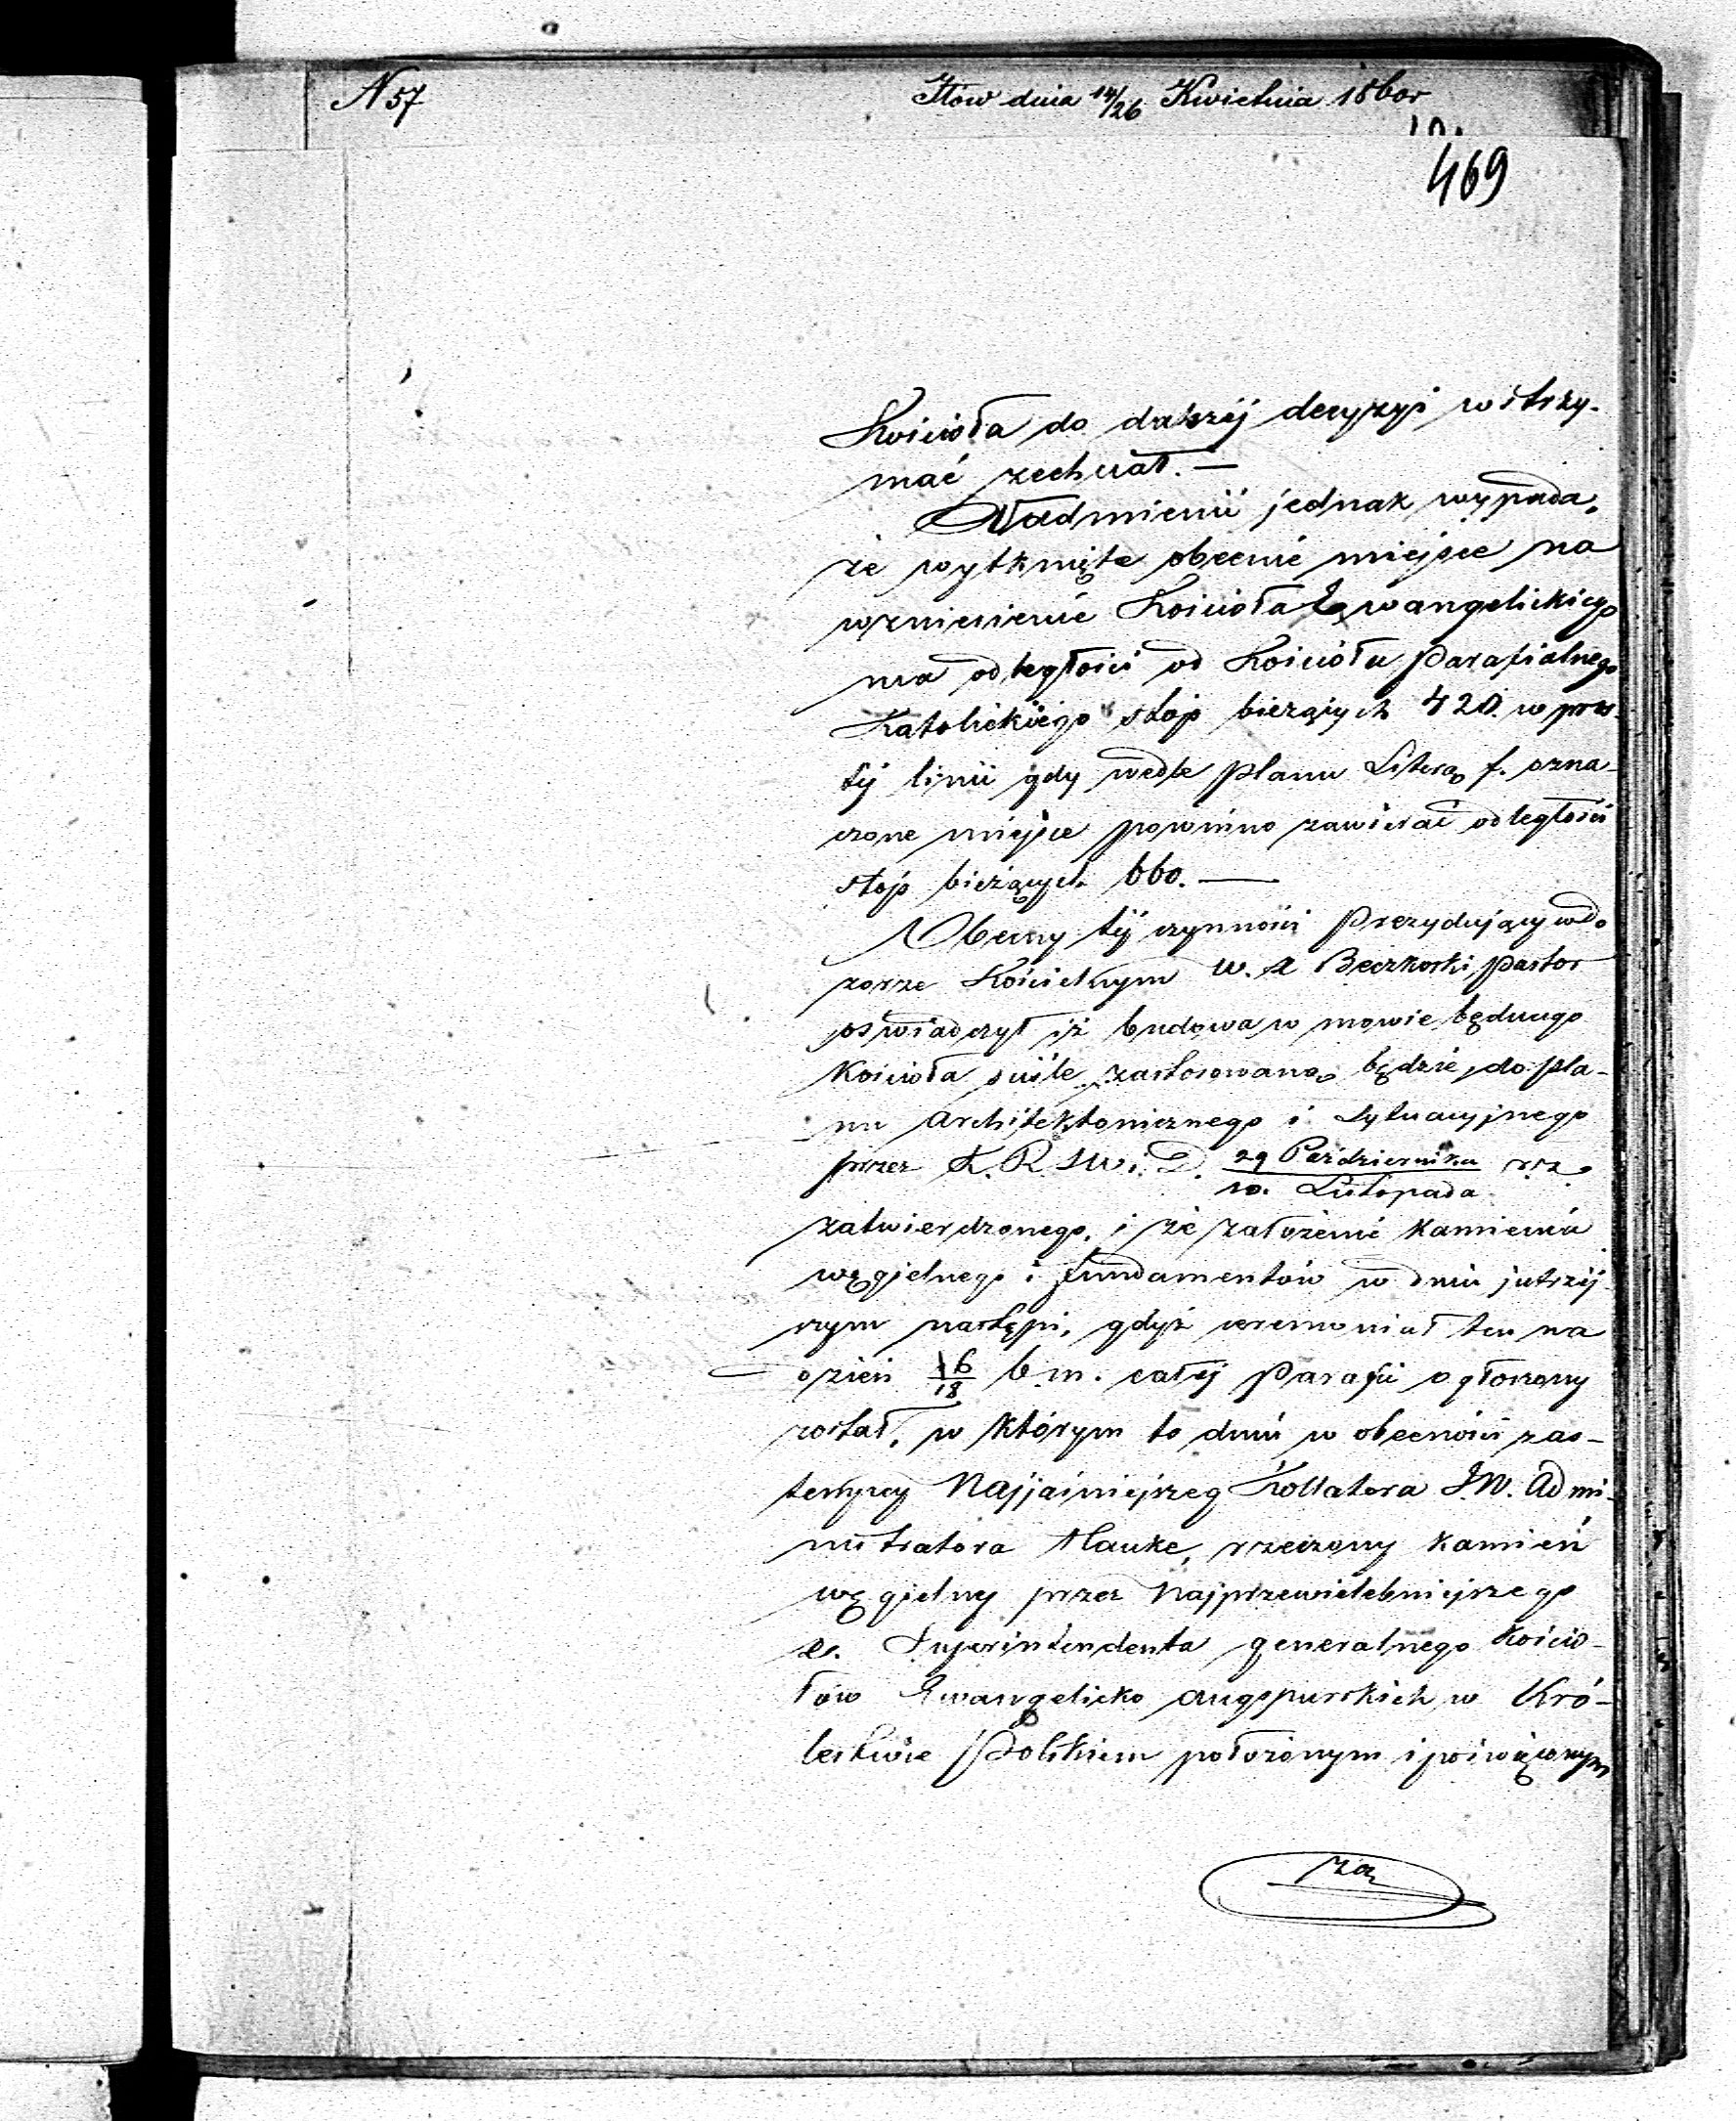 N 57
Iłów dnia 14/26 Kwietnia 1860r
469
Kościoła do dalszéj decyzyi wstrzy-
mać zechciał. —
Nadmienić jednak wypada,
że wytknięte obecnie miejsce na
wzniesienie Kościoła Ewangelickiego
ma odległości od Kościoła Parafialnego
Katolickiego stóp bieżących 420. w pros
téj linii gdy wedle planu Literą f. ozna-
czone miejsce powinno zawierać odległości
stóp bieżących 660. —
Obecny téj czynności Prezydujący w do
zorze Kościelnym W. X Beczkoski Pastor
oswiadczył iż budowa w mowie będącego
Kościoła ściśle zastosowaną będzie do pla-
nu Architektonicznego i Sytuacyjnego
przez K. R. S. W. i. D. 29 Października / 10. Listopada r. z.
zatwierdzonego, i że założenie kamienia
węgielnego i fundamentów w dniu jutrzéj
szym nastąpi, gdyż ceremoniał ten na
dzień 16/18 b. m. całéj Parafii ogłoszony
został, w którym to dniu w obecności zas-
tempcy Najjaśniejszeg Kollatora J. W. Admi-
nistratora Hauke, rzeczony kamień
węgielny przez Najprzewielebniejszego
Superintendenta generalnego Kościo-
łów Ewangelicko augspurskich w Kró-
lestwie Polskiem położonym i poświęconym
za